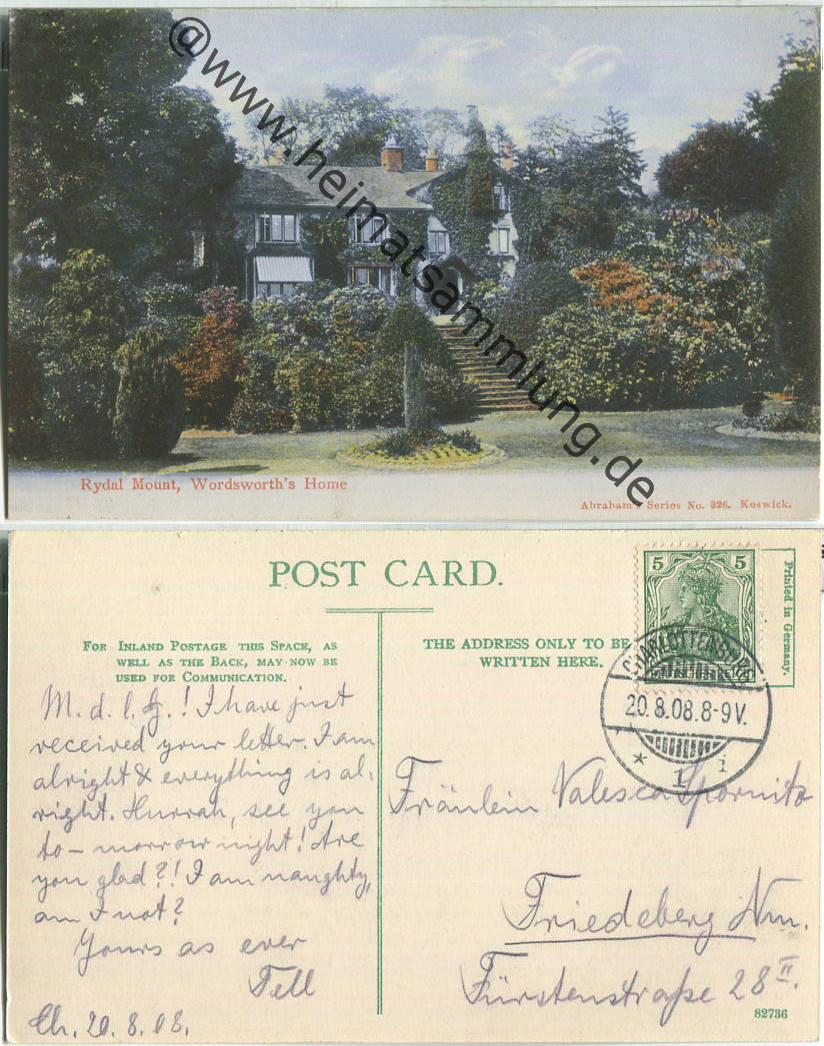 @www.heimatsammlung.de
Rydal Mount, Wordsworth's Home
Abraham's Series No. 326. Keswick.
POST CARD.
FOR INLAND POSTAGE THIS SPACE, AS
WELL AS THE BACK, MAY NOW BE
USED FOR COMMUNICATION.
THE ADDRESS ONLY TO BE
WRITTEN HERE.
Printed in Germany.
5 5
CHARLOTTENBURG
20.8.08.8-9V.
* 1 i
M. d. l. H.! I have just
received your letter. I am
alright & everything is al-
right. Hurrah, see you
to-morrow night! Are
you glad?! I am naughty,
am I not?
Yours as ever
Tell
Ch. 20.8.08.
Fräulein Valesca Spornitz
Friedeberg Nm.
Fürstenstraße 28 II.
82736